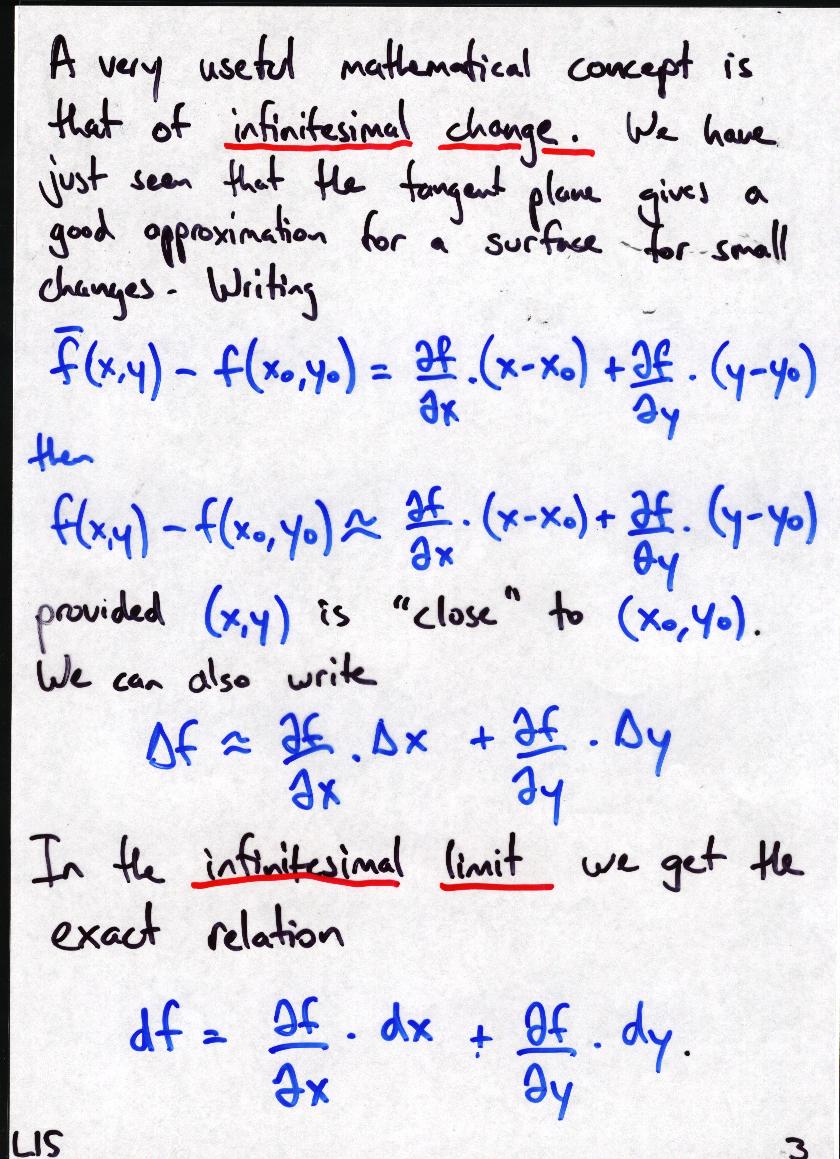 A very useful mathematical concept is
that of infinitesimal change. We have
just seen that the tangent plane gives a
good approximation for a surface for small
changes. Writing
f̅(x,y) - f(x₀,y₀) = ∂f/∂x . (x-x₀) + ∂f/∂y . (y-y₀)
then
f(x,y) - f(x₀,y₀) ≈ ∂f/∂x . (x-x₀) + ∂f/∂y . (y-y₀)
provided (x,y) is "close" to (x₀,y₀).
We can also write
Δf ≈ ∂f/∂x . Δx + ∂f/∂y . Δy
In the infinitesimal limit we get the
exact relation
df = ∂f/∂x . dx + ∂f/∂y . dy.
L15 3